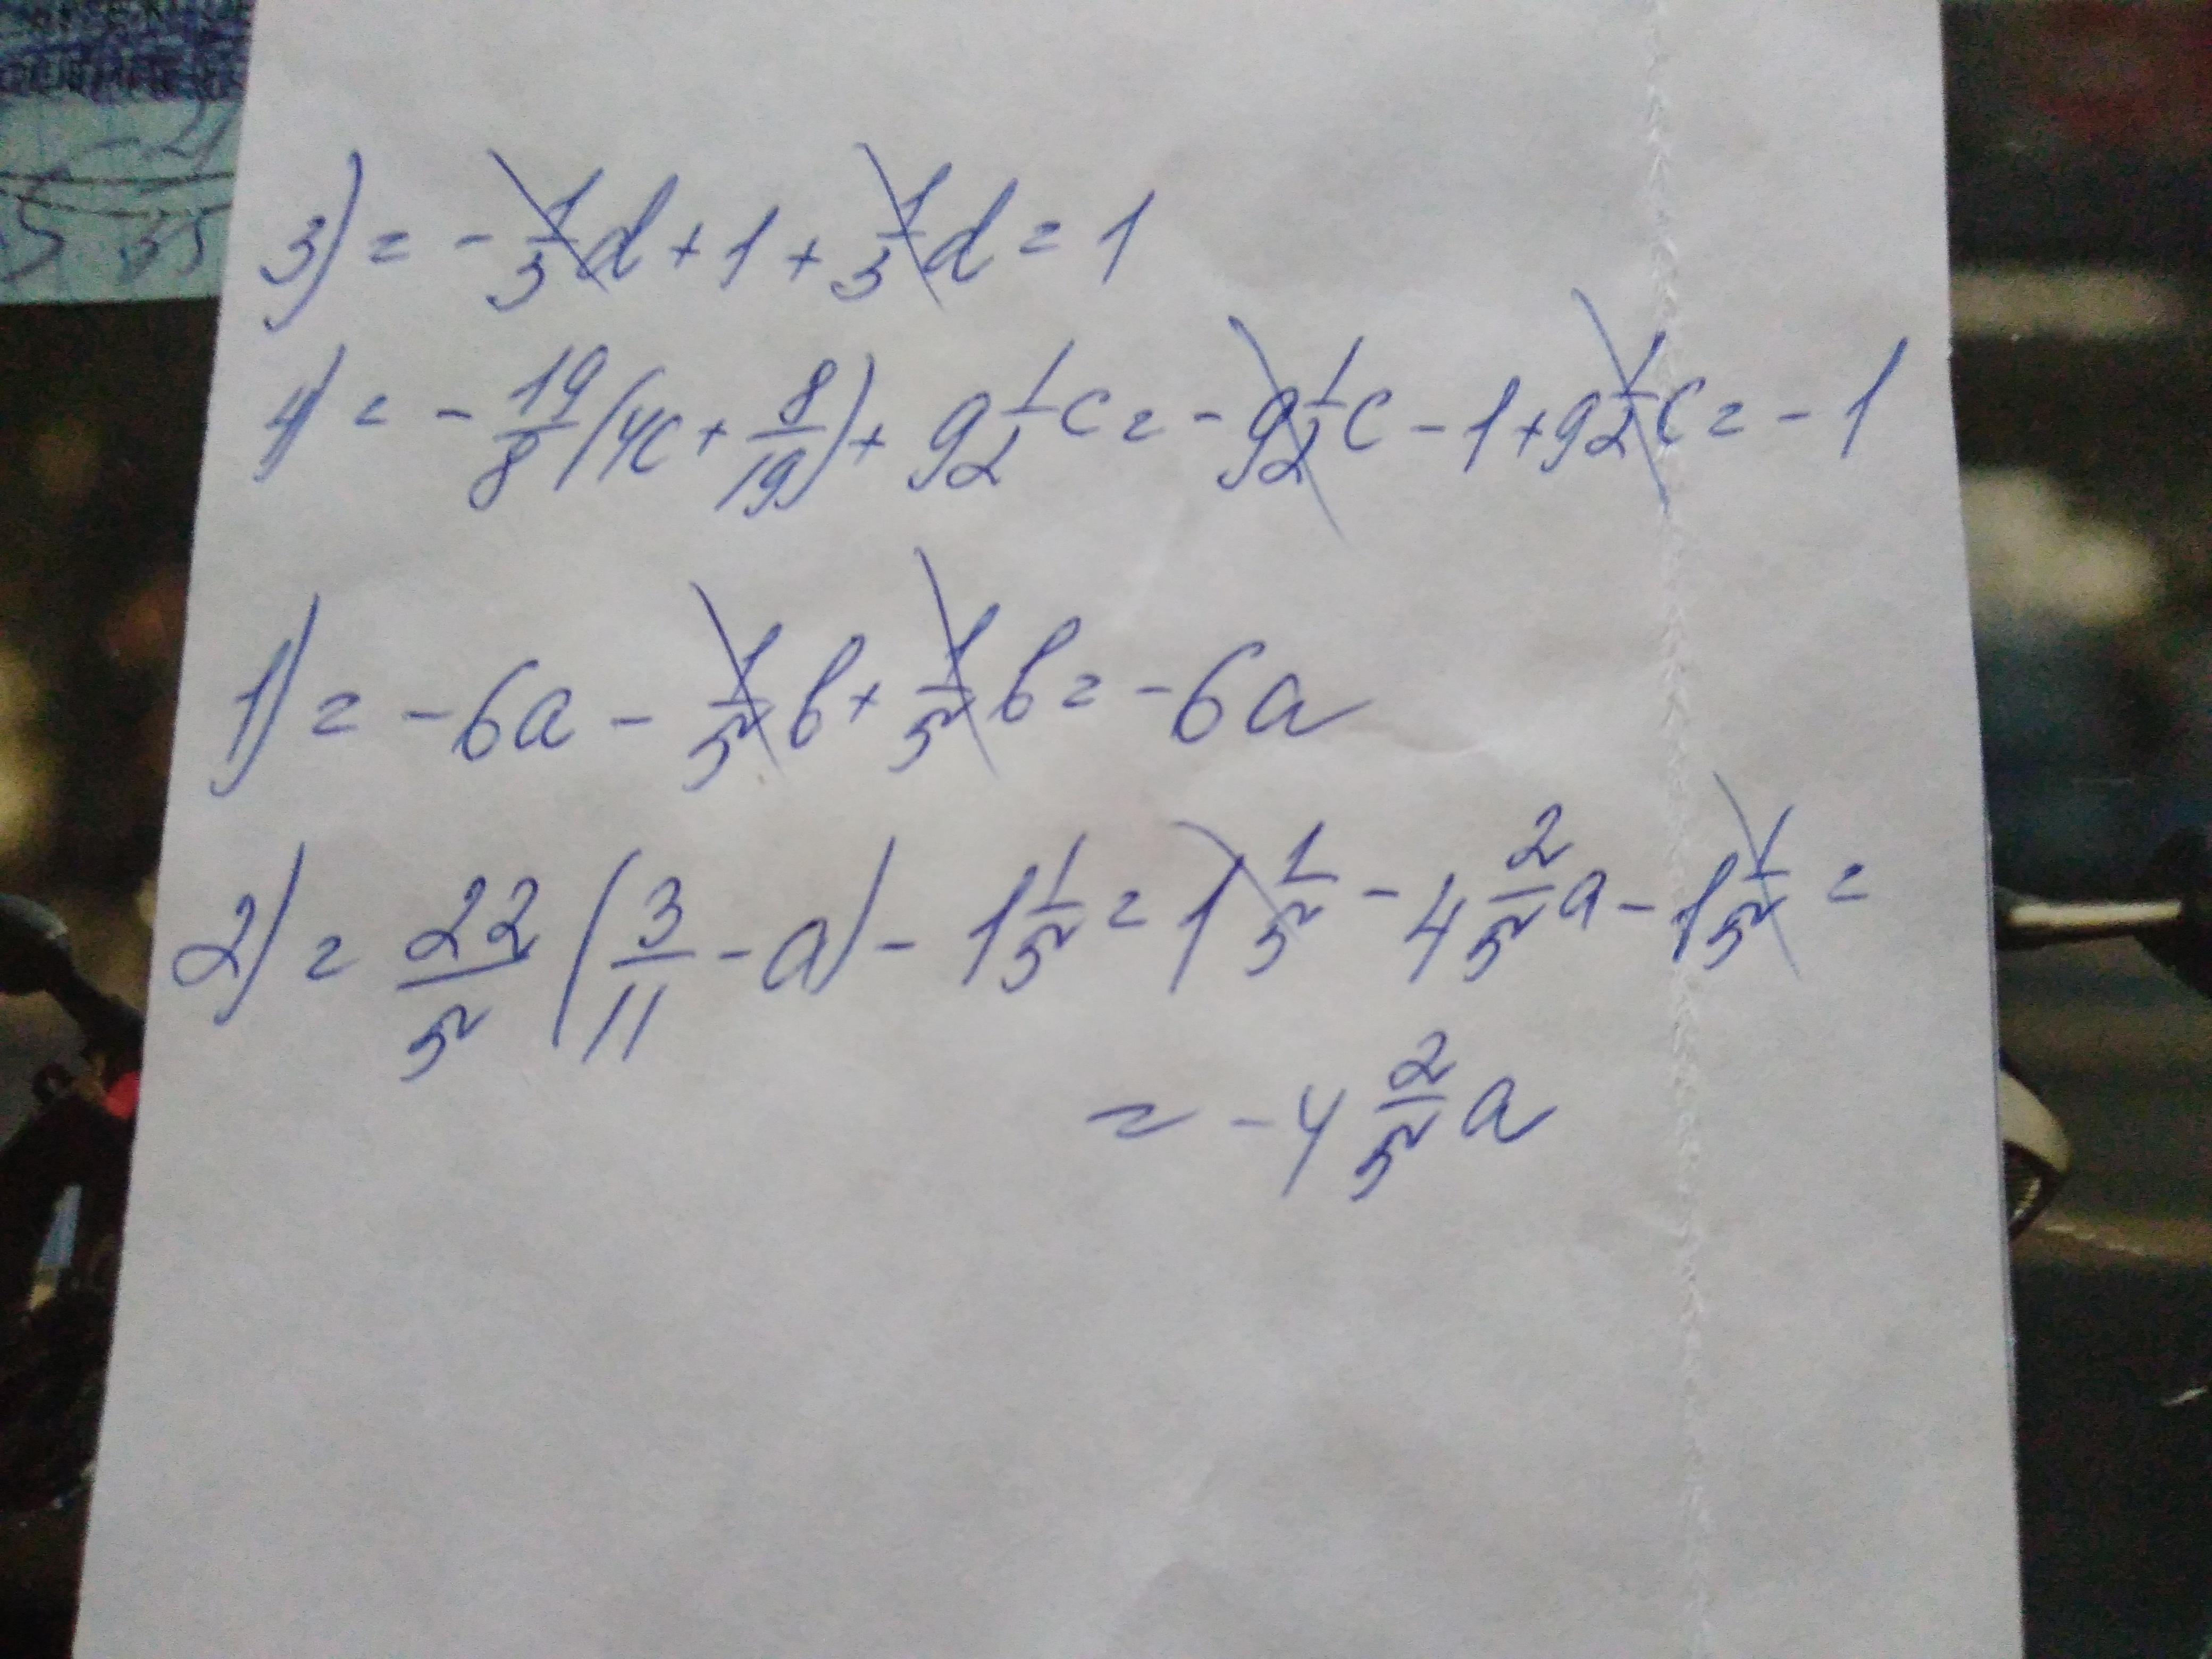 3) = - 1/3 d + 1 + 1/3 d = 1
4) = - 19/8 (4c + 8/19) + 9 1/2 c = - 9 1/2 c - 1 + 9 1/2 c = - 1
1) = - 6a - 1/5 b + 1/5 b = - 6a
2) = 22/5 (3/11 - a) - 1 1/5 = 1 1/5 - 4 2/5 a - 1 1/5 =
= - 4 2/5 a